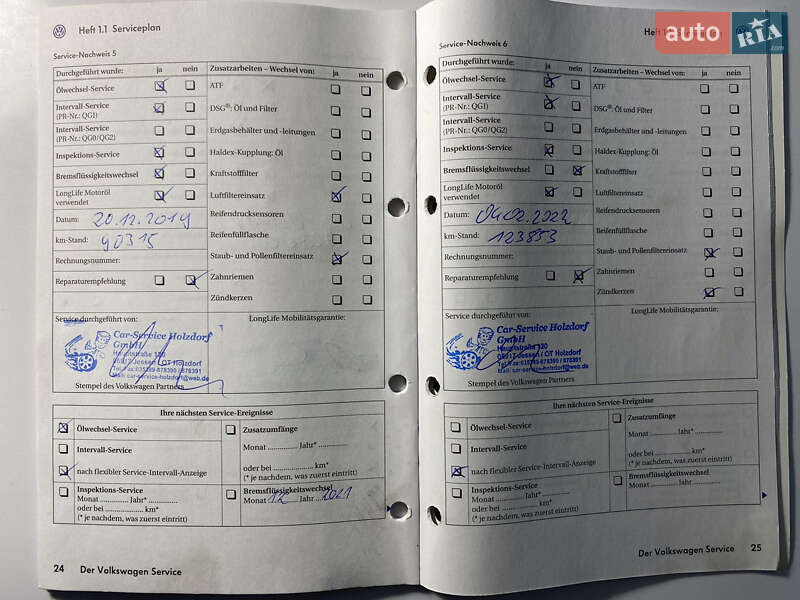 Heft 1.1 Serviceplan
Service-Nachweis 5
Durchgeführt wurde: ja nein
Ölwechsel-Service
Intervall-Service
(PR-Nr.: QG1)
Intervall-Service
(PR-Nr.: QG0/QG2)
Inspektions-Service
Bremsflüssigkeitswechsel
LongLife Motoröl
verwendet
Datum: 20.12.2019
km-Stand: 90315
Rechnungsnummer:
Reparaturempfehlung
Zusatzarbeiten – Wechsel von: ja nein
ATF
DSG®: Öl und Filter
Erdgasbehälter und -leitungen
Haldex-Kupplung: Öl
Kraftstofffilter
Luftfiltereinsatz
Reifendrucksensoren
Reifenfüllflasche
Staub- und Pollenfiltereinsatz
Zahnriemen
Zündkerzen
Service durchgeführt von:
LongLife Mobilitätsgarantie:
Car-Service Holzdorf
GmbH
Hauptstraße 120
06917 Jessen / OT Holzdorf
Tel./Fax: 035389-878390 / 878391
Mail: car-service-holzdorf@web.de
Stempel des Volkswagen Partners
Ihre nächsten Service-Ereignisse
Ölwechsel-Service
Intervall-Service
nach flexibler Service-Intervall-Anzeige
Inspektions-Service
Monat ............... Jahr* ...............
oder bei ............... km*
(* je nachdem, was zuerst eintritt)
Zusatzumfänge
Monat ............... Jahr* ...............
oder bei ............... km*
(* je nachdem, was zuerst eintritt)
Bremsflüssigkeitswechsel
Monat 12 Jahr 2021
24 Der Volkswagen Service
Heft
auto RIA
.com
Service-Nachweis 6
Durchgeführt wurde: ja nein
Ölwechsel-Service
Intervall-Service
(PR-Nr.: QG1)
Intervall-Service
(PR-Nr.: QG0/QG2)
Inspektions-Service
Bremsflüssigkeitswechsel
LongLife Motoröl
verwendet
Datum: 04.02.2022
km-Stand: 123853
Rechnungsnummer:
Reparaturempfehlung
Zusatzarbeiten – Wechsel von: ja nein
ATF
DSG®: Öl und Filter
Erdgasbehälter und -leitungen
Haldex-Kupplung: Öl
Kraftstofffilter
Luftfiltereinsatz
Reifendrucksensoren
Reifenfüllflasche
Staub- und Pollenfiltereinsatz
Zahnriemen
Zündkerzen
Service durchgeführt von:
LongLife Mobilitätsgarantie:
Car-Service Holzdorf
GmbH
Hauptstraße 120
06917 Jessen / OT Holzdorf
Tel./Fax: 035389-878390 / 878391
Mail: car-service-holzdorf@web.de
Stempel des Volkswagen Partners
Ihre nächsten Service-Ereignisse
Ölwechsel-Service
Intervall-Service
nach flexibler Service-Intervall-Anzeige
Inspektions-Service
Monat ............... Jahr* ...............
oder bei ............... km*
(* je nachdem, was zuerst eintritt)
Zusatzumfänge
Monat ............... Jahr* ...............
oder bei ............... km*
(* je nachdem, was zuerst eintritt)
Bremsflüssigkeitswechsel
Monat ............... Jahr ...............
Der Volkswagen Service 25